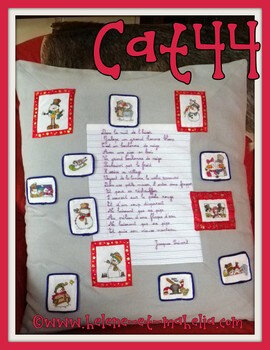 Cat44
Dans la nuit de l'hiver
Galope un grand homme blanc
C'est un bonhomme de neige
Avec une pipe en bois
Un grand bonhomme de neige
Poursuivi par le froid
Il arrive au village
Voyant de la lumière le voilà rassuré
Dans une petite maison, il entre sans frapper
Et pour se réchauffer
S'assoit sur le poêle rouge
Et d'un coup disparaît
Ne laissant que sa pipe
Au milieu d'une flaque d'eau
Ne laissant que sa pipe
Et puis son vieux chapeau
Jacques Prévert
©www.helene-et-makalia.com